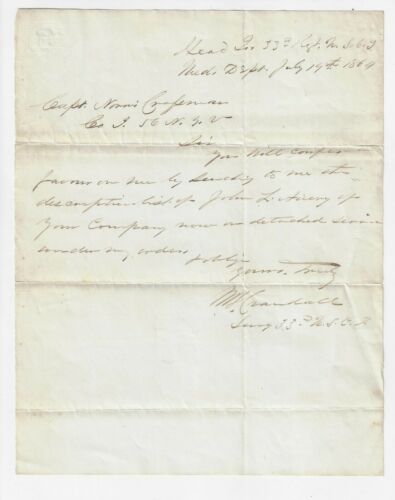 Head Qrs 33d Regt U.S.C.T
Med. Dept. July 19th 1864
Capt. Norris Crossman
Co I. 56 N.Y.V
Sir
You will confer
favour on me by sending to me the
descriptive list of John L. Airey of
Your Company now on detached service
under my orders
& oblige
Yours Truly
M. Crandall
Surg 33d U.S.C.T